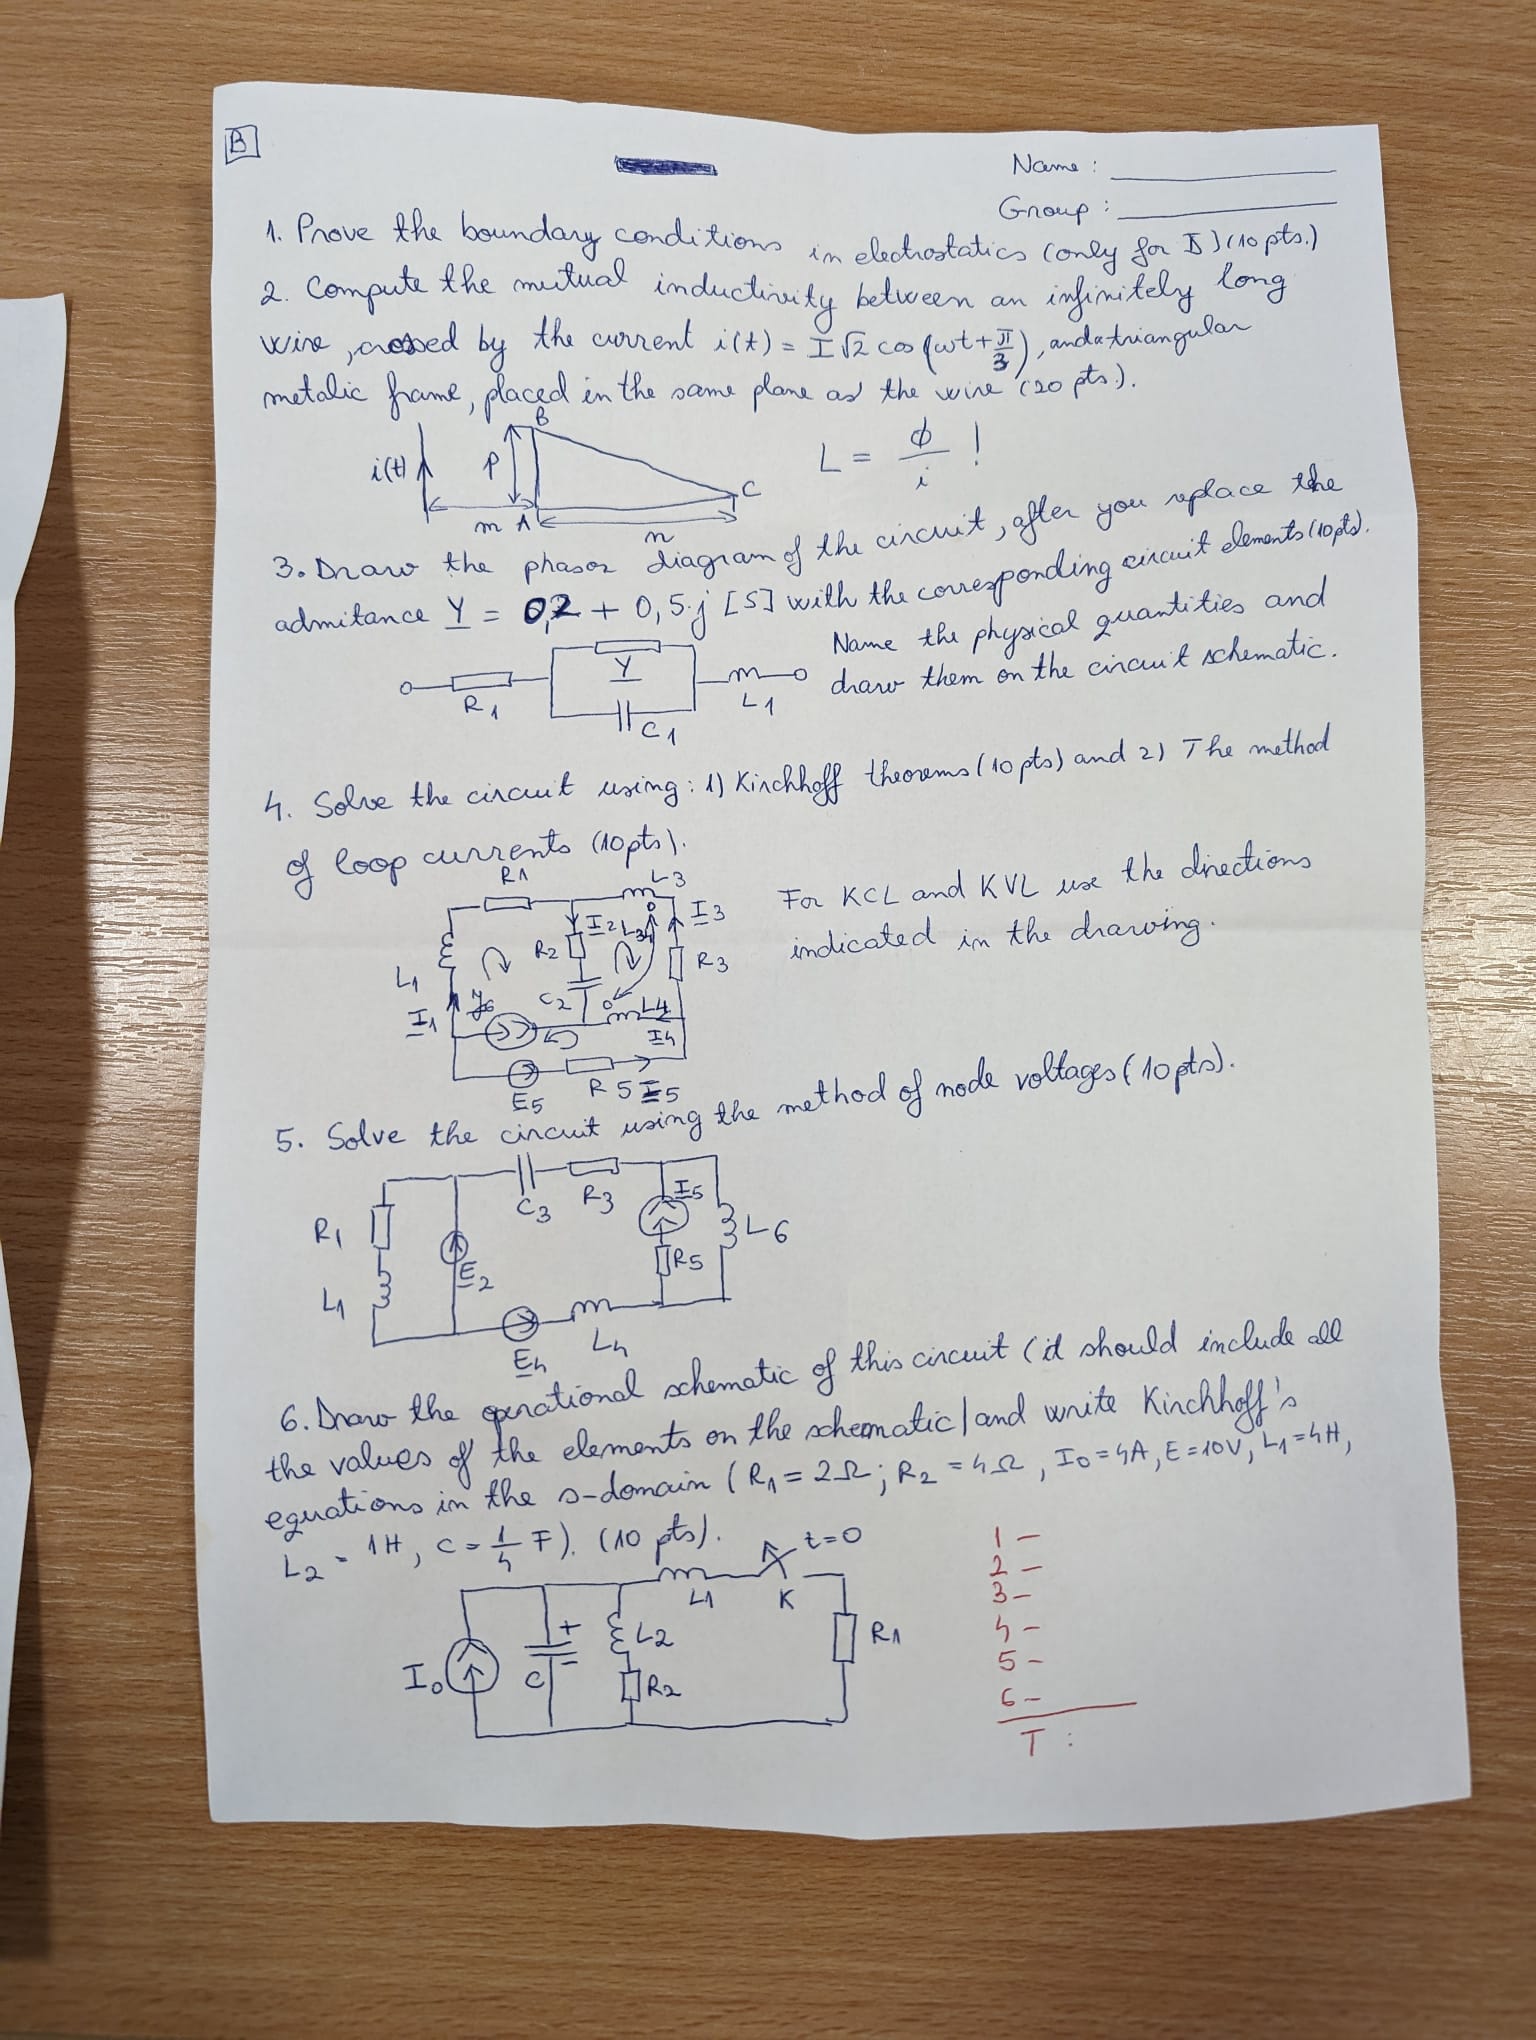 B
Name :
Group :
1. Prove the boundary conditions in electrostatics (only for D̄) (10 pts.)
2. Compute the mutual inductivity between an infinitely long
wire, crossed by the current i(t) = I√2 cos(ωt+π/3), and a triangular
metalic frame, placed in the same plane as the wire (20 pts.).
B
i(t) p C
m A n
L = ϕ/i !
3. Draw the phasor diagram of the circuit, after you replace the
admitance Y = 0,2 + 0,5·j [S] with the corresponding circuit elements (10pts).
Name the physical quantities and
draw them on the circuit schematic.
Y
R1 L1
C1
4. Solve the circuit using: 1) Kirchhoff theorems (10 pts) and 2) The method
of loop currents (10pts).
For KCL and KVL use the directions
indicated in the drawing.
R1 L3
I2 L34 I3
R2 R3
L1 C2 L4
I1 J6 I4
E5 R5 I5
5. Solve the circuit using the method of node voltages (10pts).
C3 R3 I5
R1 L6
E2 R5
L1
E4 L4
6. Draw the operational schematic of this circuit (it should include all
the values of the elements on the schematic) and write Kirchhoff's
equations in the s-domain (R1 = 2Ω; R2 = 4Ω, I0 = 4A, E = 10V, L1 = 4H,
L2 = 1H, C = 1/4 F). (10 pts).
t=0
L1 K
I0 C + - L2 R1
R2
1 -
2 -
3 -
4 -
5 -
6 -
T :